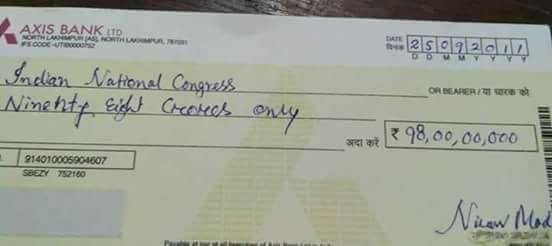 AXIS BANK LTD
NORTH LAKHIMPUR [AS], NORTH LAKHIMPUR, 787001
IFS CODE - UTIB0000752
DATE दिनांक 25092011
D D M M Y Y Y Y
Indian National Congress OR BEARER / या धारक को
Ninenty Eight Crores only
अदा करें ₹ 98,00,00,000
914010005904607
SBEZY 752160
Nirav Mod
Payable at par at all branches of Axis Bank